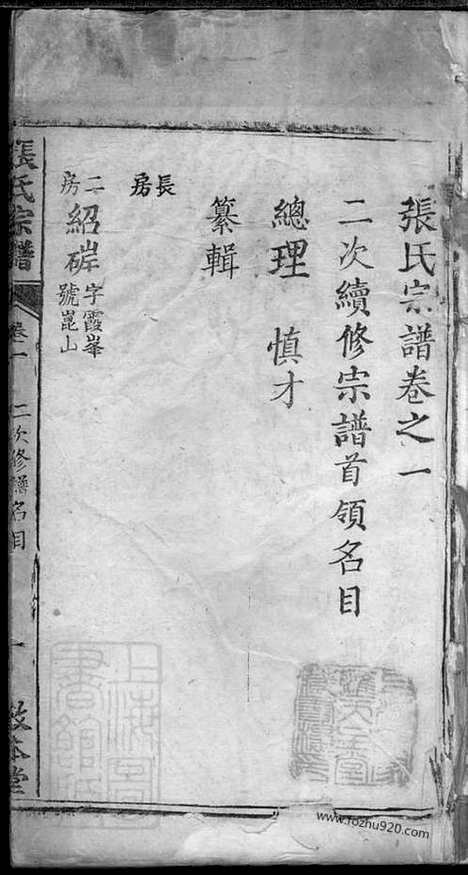 張氏宗譜卷之一
二次續修宗譜首領名目
總理 慎才
纂輯
長房
二房 紹㟁 字霞峯 號崑山
張氏宗譜 卷一 二次修譜名目 一 敦本堂
上海圖書館藏
www.fozhu920.com